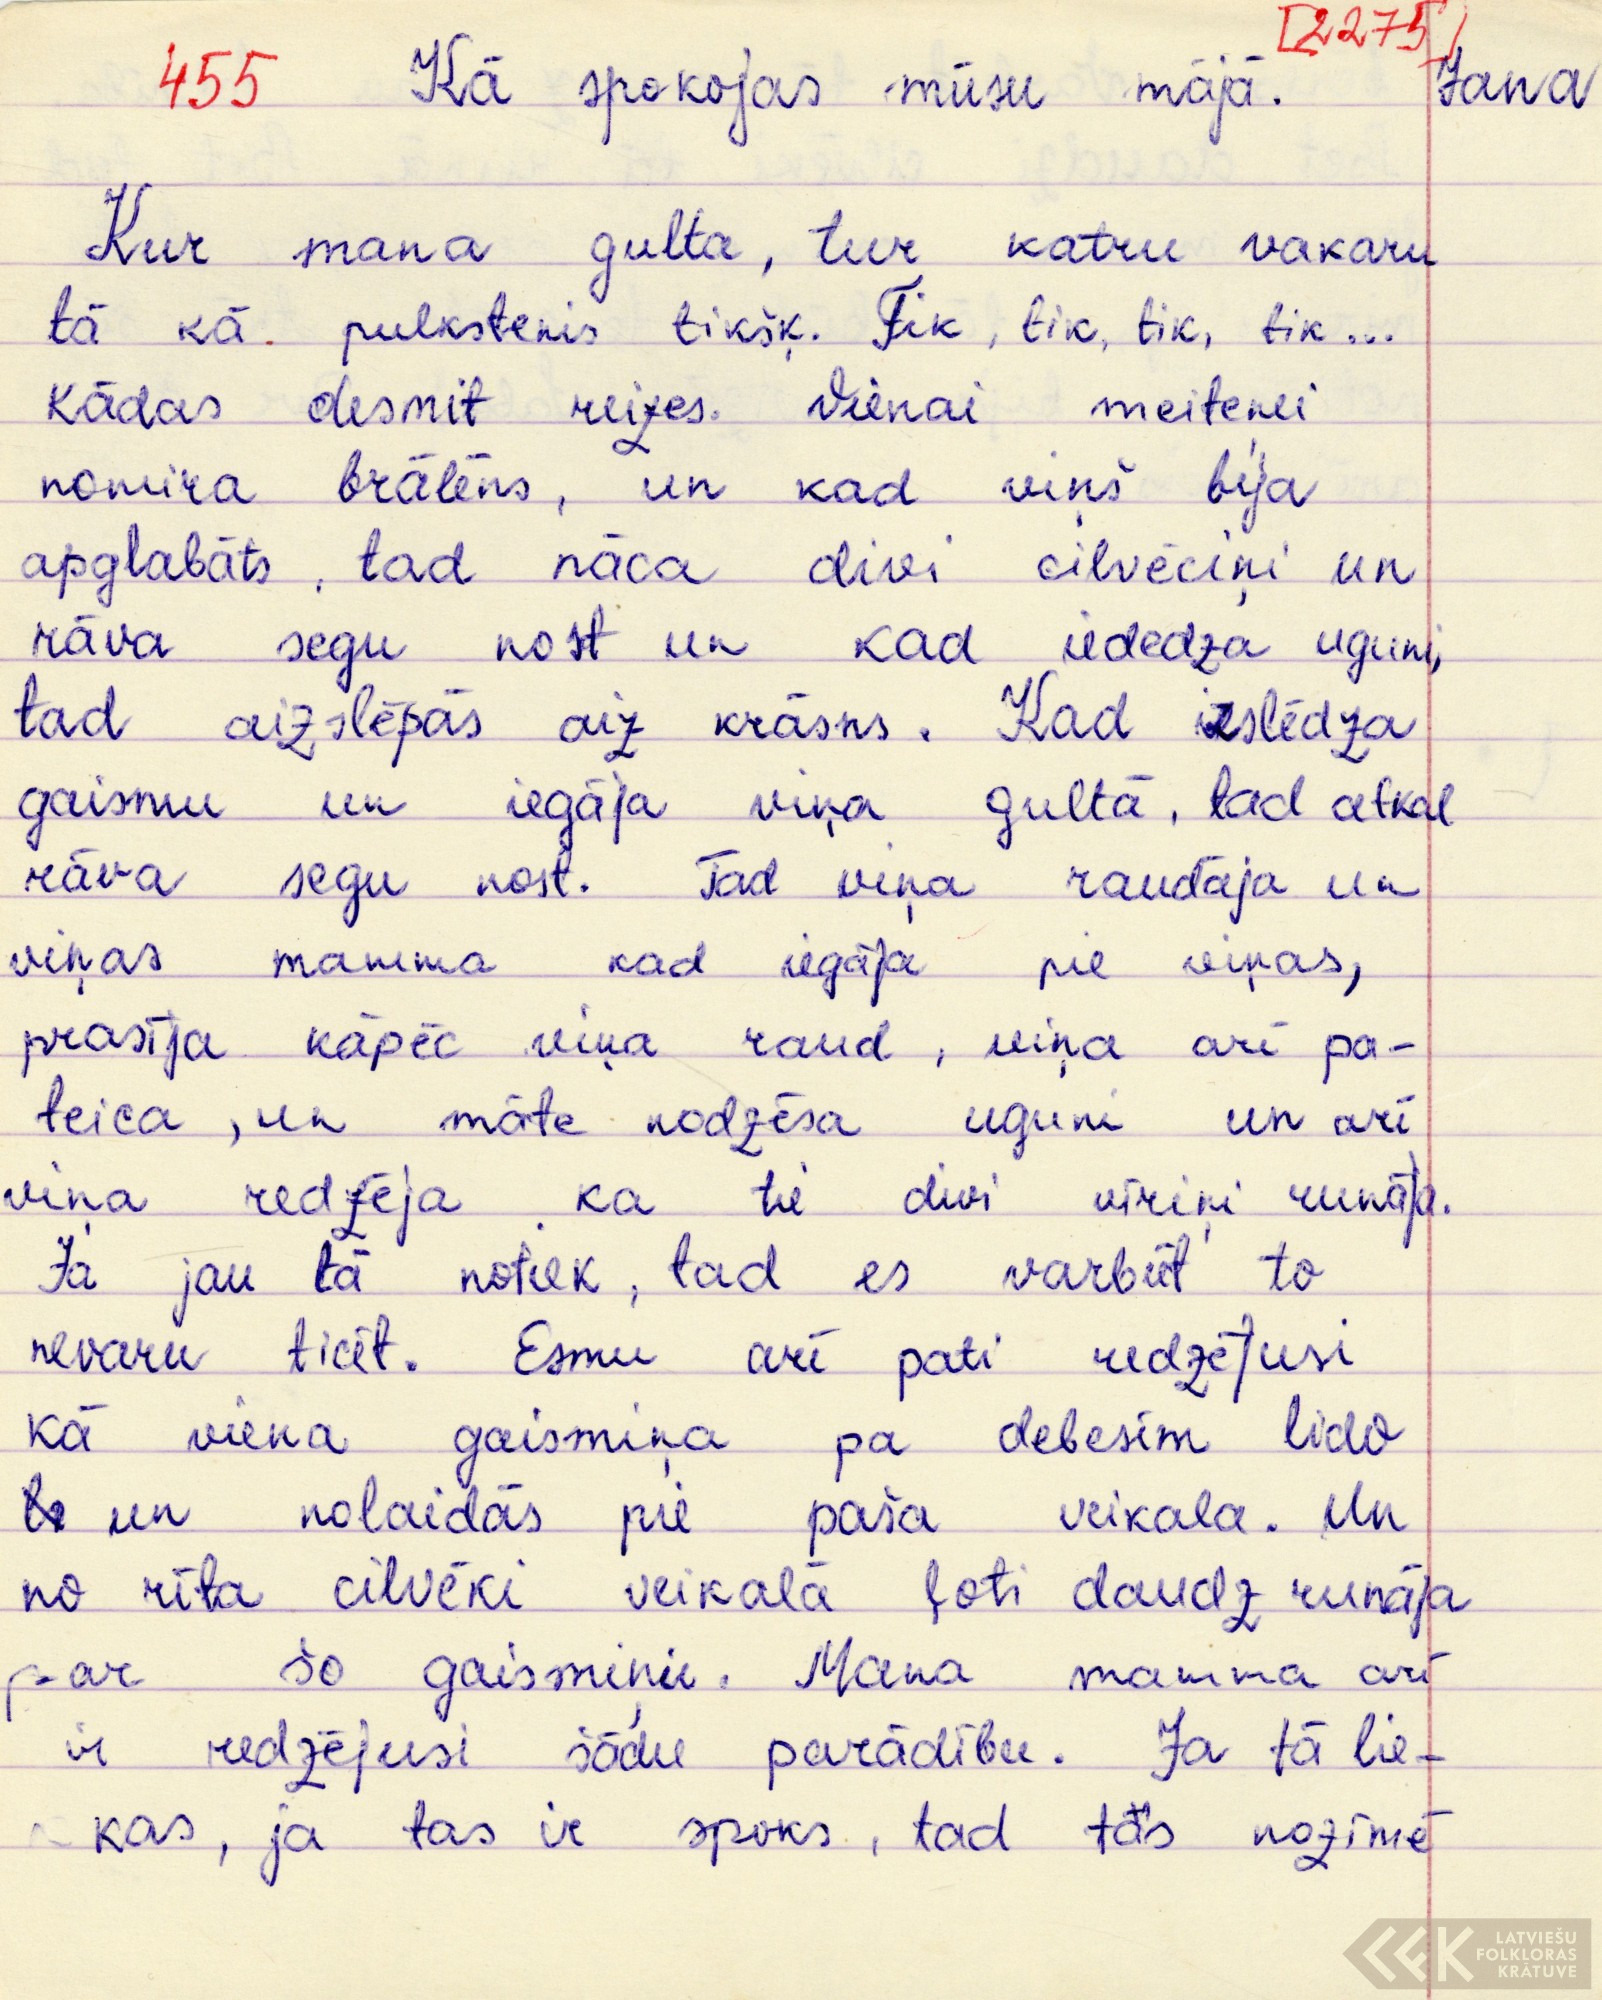 [2275]
455 Kā spokojas mūsu mājā. Jana
Kur mana gulta, tur katru vakaru
tā kā pulkstenis tikšķ. Tik, tik, tik, tik...
kādas desmit reizes. Vienai meitenei
nomira brālēns, un kad viņš bija
apglabāts, tad nāca divi cilvēciņi un
rāva segu nost un kad iededza uguni,
tad aizslēpās aiz krāsns. Kad izslēdza
gaismu un iegāja viņa gultā, tad atkal
rāva segu nost. Tad viņa raudāja un
viņas mamma kad iegāja pie viņas,
prasīja kāpēc viņa raud, viņa arī pa-
teica, un māte nodzēsa uguni un arī
viņa redzēja ka tie divi vīriņi runāja.
Ja jau tā notiek, tad es varbūt to
nevaru ticēt. Esmu arī pati redzējusi
kā viena gaismiņa pa debesīm lido
un nolaidās pie paša veikala. Un
no rīta cilvēki veikalā ļoti daudz runāja
par šo gaismiņu. Mana mamma arī
ir redzējusi šādu parādību. Ja tā lie-
kas, ja tas ir spoks, tad tas nozīmē
LATVIEŠU
FOLKLORAS
KRĀTUVE